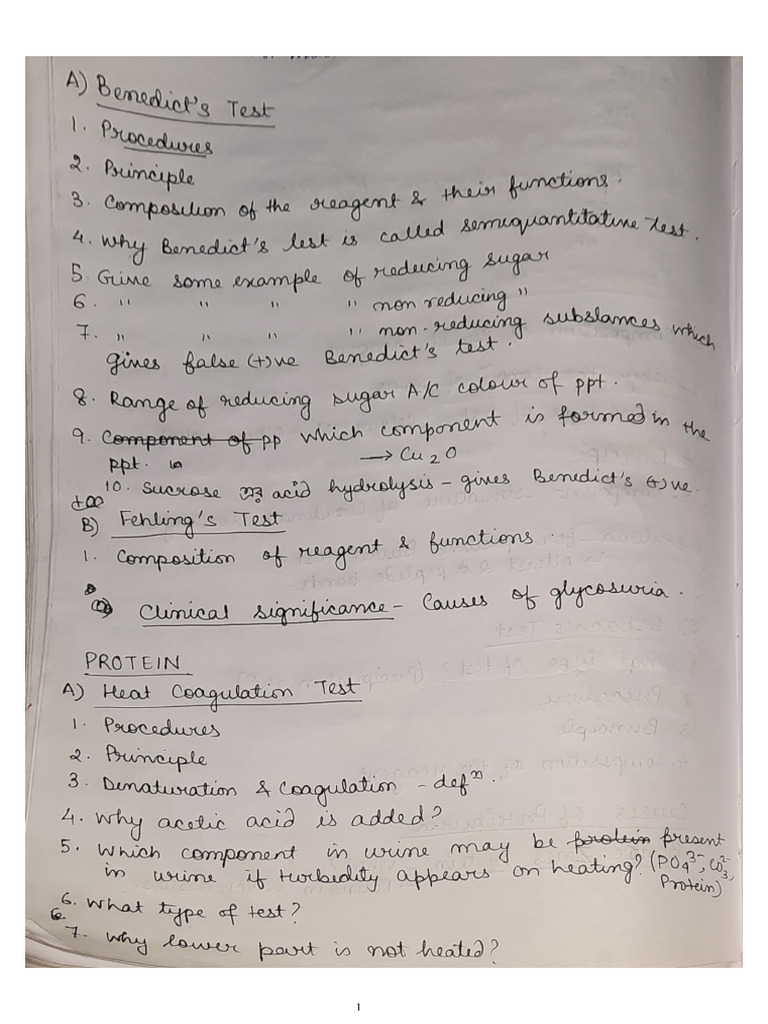 A) Benedict's Test
1. Procedures
2. Principle
3. Composition of the reagent & their functions.
4. Why Benedict's test is called semiquantitative test.
5. Give some example of reducing sugar
6. " " " " non reducing "
7. " " " " non-reducing substances which
gives false (+)ve Benedict's test.
8. Range of reducing sugar A/C colour of ppt.
9. Component of pp which component is formed in the
ppt. → Cu2O
10. Sucrose acid hydrolysis - gives Benedict's (+)ve
B) Fehling's Test
1. Composition of reagent & functions.
Clinical significance - Causes of glycosuria.
PROTEIN
A) Heat Coagulation Test
1. Procedures
2. Principle
3. Denaturation & Coagulation - defⁿ.
4. Why acetic acid is added?
5. Which component in urine may be protein present
in urine if turbidity appears on heating? (PO4³⁻, CO3²⁻,
Protein)
6. What type of test?
7. Why lower part is not heated?
1